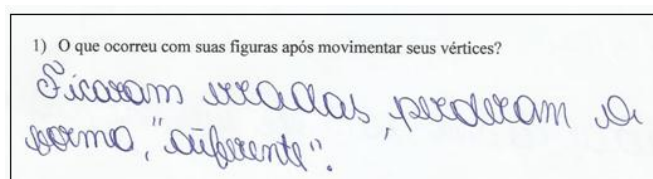 1) O que ocorreu com suas figuras após movimentar seus vértices?
Ficaram erradas, perderam a
forma, "diferente".